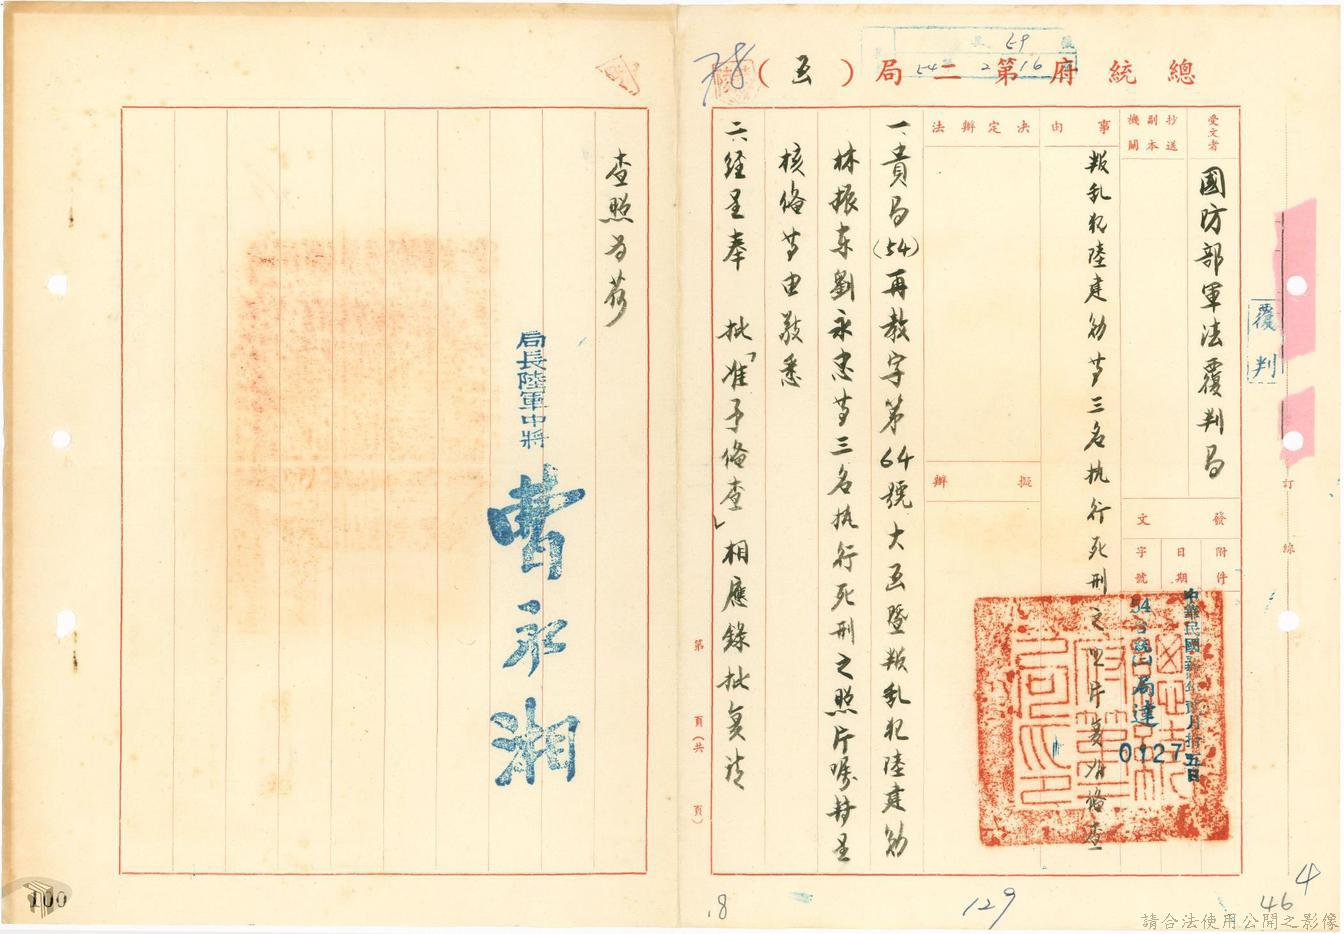 總統府第二局（函）
受文者
國防部軍法覆判局
抄送副本機關
發文
附件
日期
中華民國
年
月拾五日
字號
54
局達
0127
事由
叛亂犯陸建勛等三名执行死刑之照片复准俻查
決定辦法
擬辦
一、貴局(54)再教字第64號大函暨叛亂犯陸建勛
林振東劉永忠等三名执行死刑之照片囑轉呈
核俻等由敬悉
二、經呈奉　批「准予俻查」相應錄批复請
查照為荷
局長陸軍中將
曹永湘
第　頁(共　頁)
覆判
訂
線
59
54 2 16
100
.8
129
46
4
請合法使用公開之影像